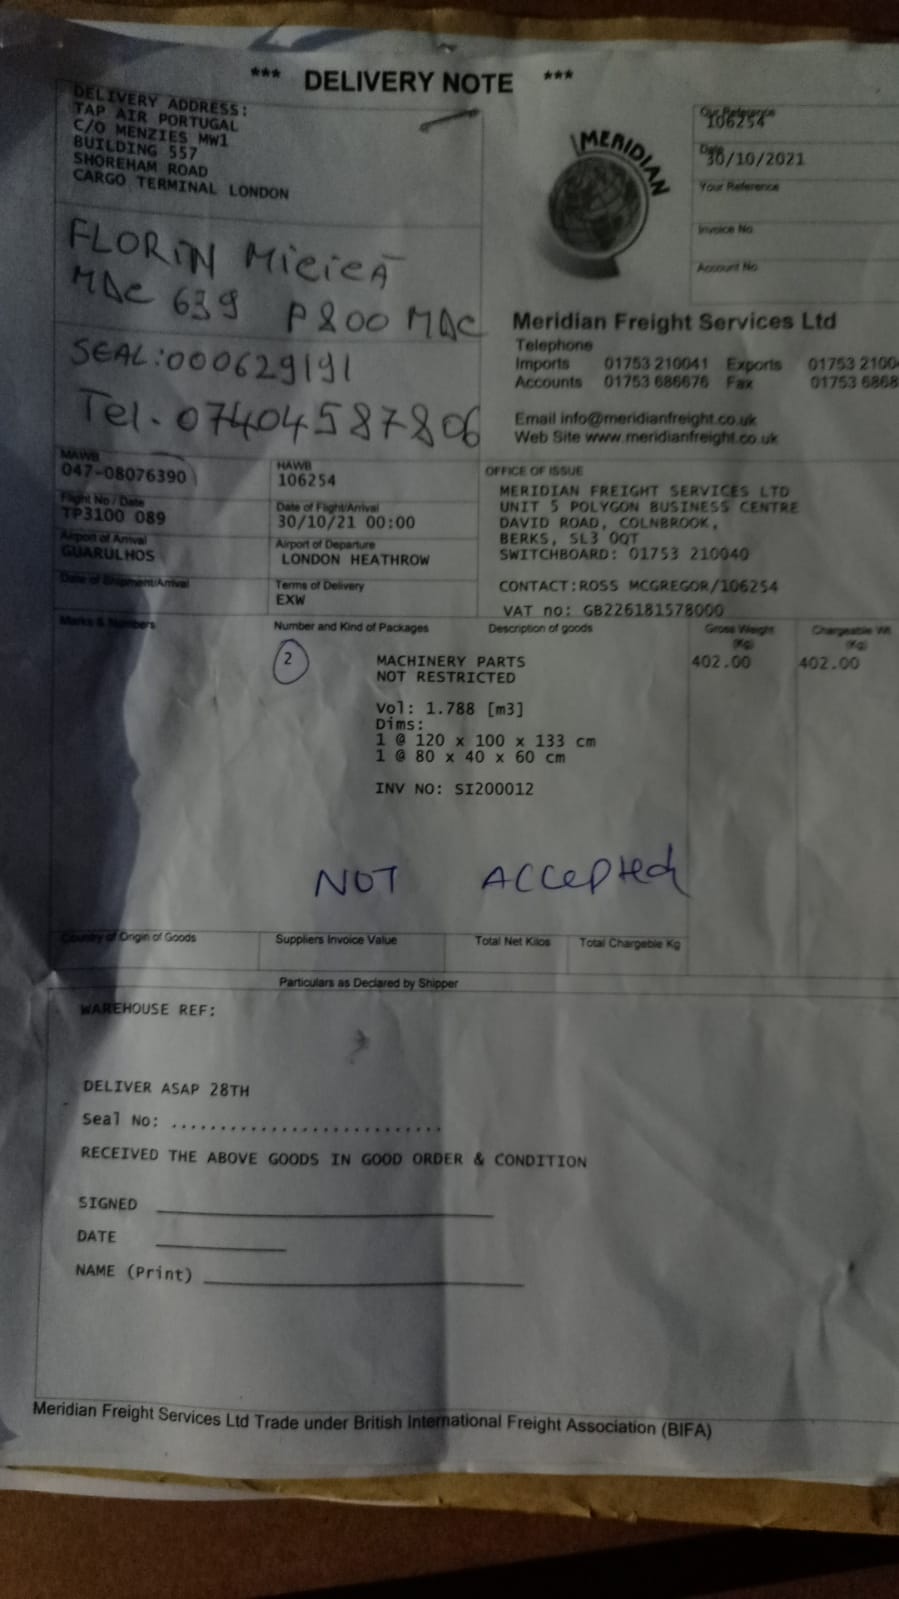 *** DELIVERY NOTE ***
DELIVERY ADDRESS:
TAP AIR PORTUGAL
C/O MENZIES MW1
BUILDING 557
SHOREHAM ROAD
CARGO TERMINAL LONDON
MERIDIAN
Our Reference
106254
Date
30/10/2021
Your Reference
Invoice No
Account No
FLORIN
MAC 639 P800 MAC
SEAL:000629191
Tel. 07404587806
Meridian Freight Services Ltd
Telephone
Imports 01753 210041 Exports 01753 2100
Accounts 01753 686676 Fax 01753 6868
Email info@meridianfreight.co.uk
Web Site www.meridianfreight.co.uk
MAWB
047-08076390
HAWB
106254
Flight No / Date
TP3100 089
Date of Flight/Arrival
30/10/21 00:00
Airport of Arrival
GUARULHOS
Airport of Departure
LONDON HEATHROW
Date of Shipment/Arrival
Terms of Delivery
EXW
OFFICE OF ISSUE
MERIDIAN FREIGHT SERVICES LTD
UNIT 5 POLYGON BUSINESS CENTRE
DAVID ROAD, COLNBROOK,
BERKS, SL3 0QT
SWITCHBOARD: 01753 210040
CONTACT:ROSS MCGREGOR/106254
VAT no: GB226181578000
Marks & Numbers Number and Kind of Packages Description of goods Gross Weight (Kg) Chargeable Wt. (Kg)
2 MACHINERY PARTS 402.00 402.00
NOT RESTRICTED
Vol: 1.788 [m3]
Dims:
1 @ 120 x 100 x 133 cm
1 @ 80 x 40 x 60 cm
INV NO: SI200012
NOT ACCEPTED
Country of Origin of Goods Suppliers Invoice Value Total Net Kilos Total Chargeable Kg
Particulars as Declared by Shipper
WAREHOUSE REF:
DELIVER ASAP 28TH
Seal No: ...........................
RECEIVED THE ABOVE GOODS IN GOOD ORDER & CONDITION
SIGNED
DATE
NAME (Print)
Meridian Freight Services Ltd Trade under British International Freight Association (BIFA)